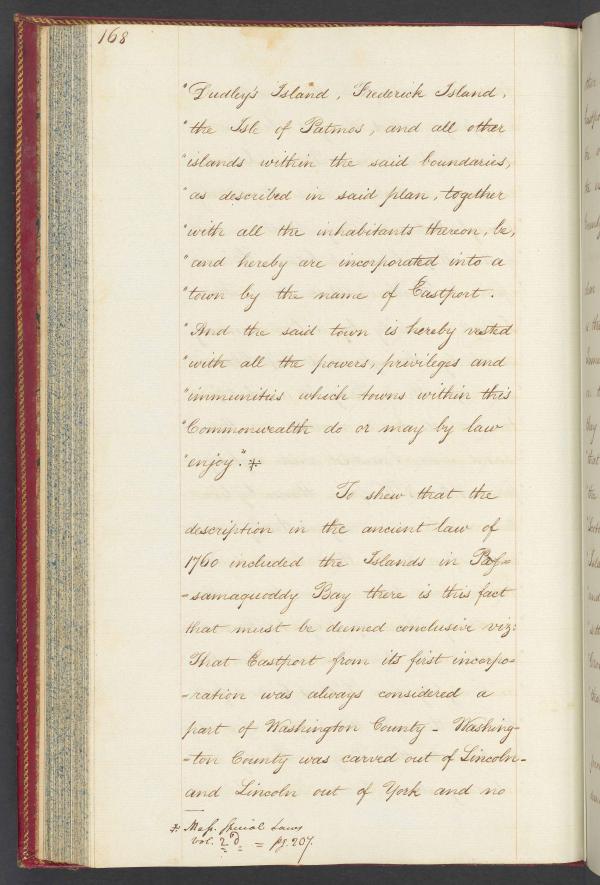 168
"Dudley's Island, Frederick Island,
"the Isle of Patmos, and all other
"islands within the said boundaries,
"as described in said plan, together
"with all the inhabitants thereon, be,
"and hereby are incorporated into a
"town by the name of Eastport.
"And the said town is hereby vested
"with all the powers, privileges and
"immunities which towns within this
"Commonwealth do or may by law
"enjoy". *
To shew that the
description in the ancient law of
1760 included the Islands in Pas=
=samaquoddy Bay there is this fact
that must be deemed conclusive viz:
That Eastport from its first incorpo-
-ration was always considered a
part of Washington County - Washing-
-ton County was carved out of Lincoln-
and Lincoln out of York and no
* Mass. Special Laws
vol. 2d = pg. 207.